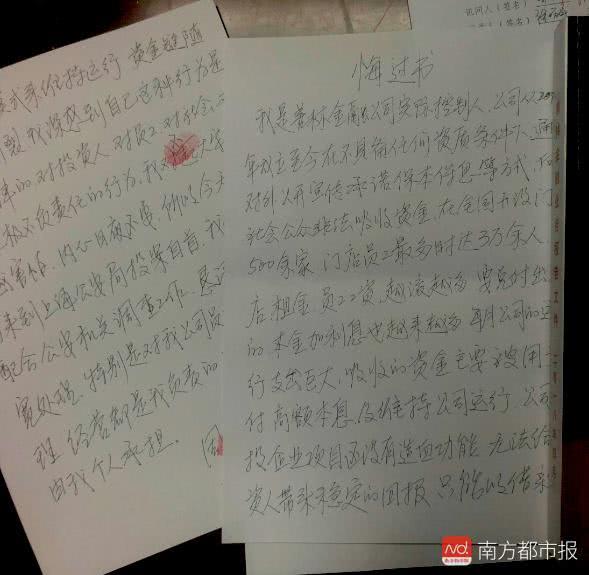 悔过书
我是善林金融公司实际控制人，公司从2013
年成立至今在不具备任何资质条件下通
对外公开宣传承诺保本付息等方式，向
社会公众非法吸收资金，在全国开设门
500余家，门店员工最多时达3万余人，
店租金、员工工资越滚越多，要兑付出
的本金加利息也越来越多，每月公司的运
行支出巨大，吸收的资金主要被用
付高额本息及维持公司运行，公司
投企业项目还没有造血功能，无法给
资人带来稳定的回报，只能以借新
式来维持运行，资金链随
断裂，我深感到自己这种行为是
的，对投资人、对员工、对社会
极不负责任的行为，我
害怕，内心日夜不安，所以今天
来到上海公安局投案自首，我
配合公安机关调查工作，恳请
宽处理，特别是对我公司员
经营都是我负责的
由我个人承担。
讯问人（签名）
南方都市报